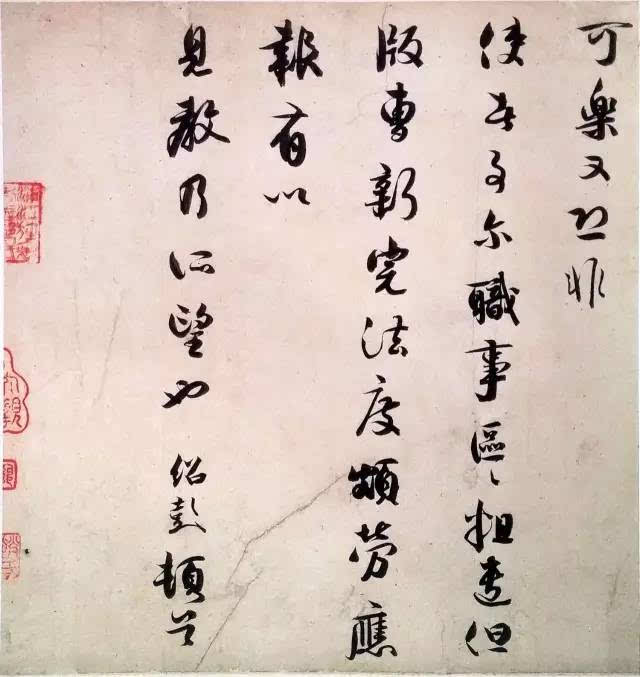 可樂又恐非
使者事尔職事區〻粗遣但
版曹新完法度頗勞應
報有以
見教乃所望也 紹彭頓首